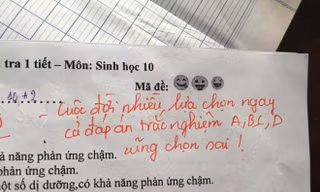 tra 1 tiết – Môn: Sinh học 10
Mã đề:
10A2
- Cuộc đời nhiều lựa chọn ngay
cả đáp án trắc nghiệm A,B,C,D
cũng chọn sai !
ả năng phản ứng chậm.
phản ứng chậm.
ột số dị dưỡng,có khả năng phản ứng chậm.